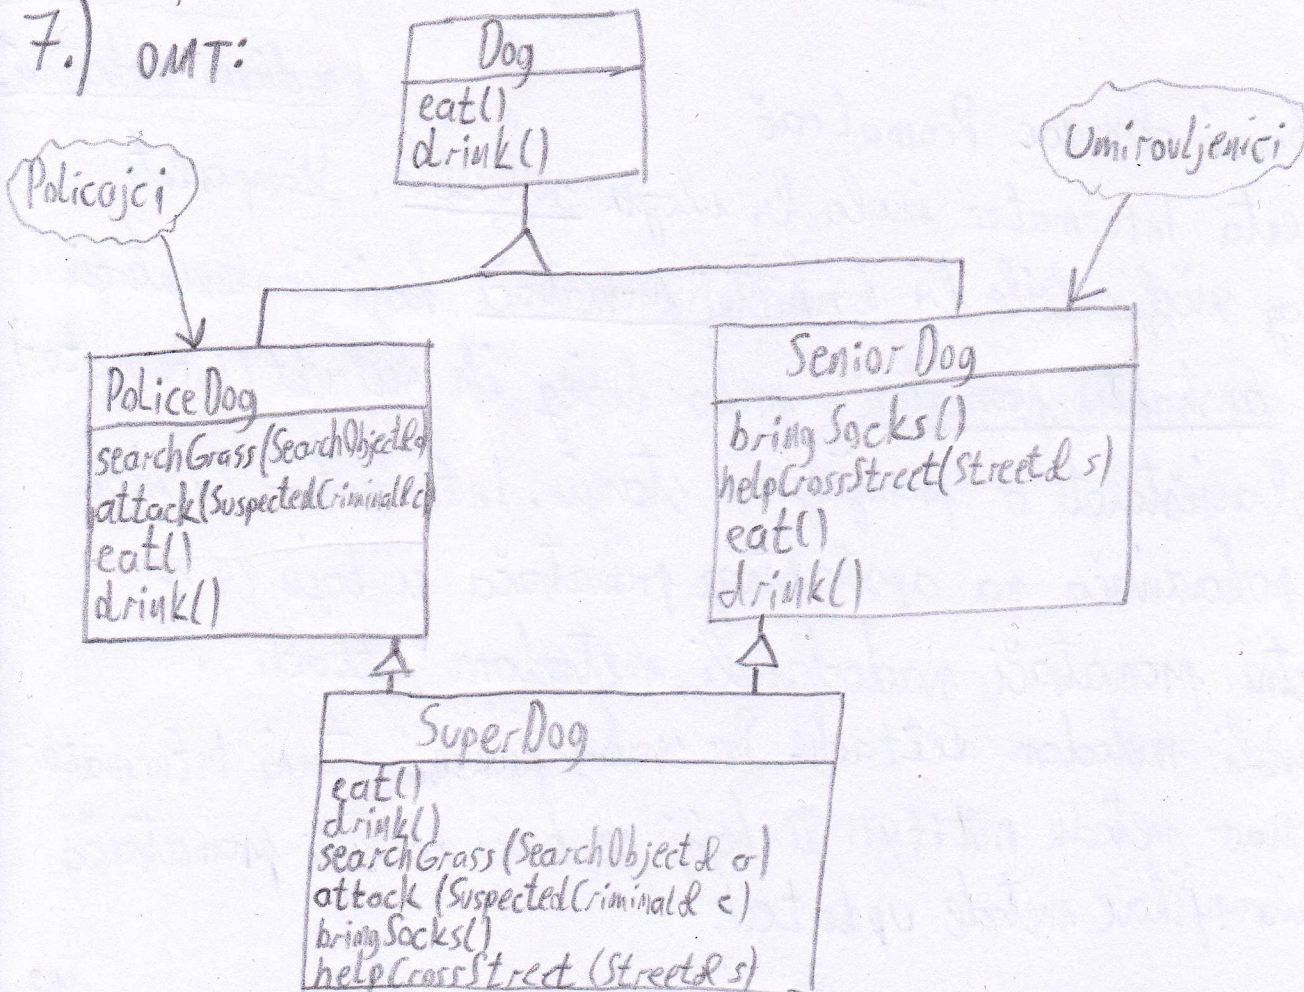 7.) OMT:
Dog
eat()
drink()
Policajci
Umirovljenici
PoliceDog
searchGrass(SearchObject& o)
attack(SuspectedCriminal& c)
eat()
drink()
SeniorDog
bringSocks()
helpCrossStreet(Street& s)
eat()
drink()
SuperDog
eat()
drink()
searchGrass(SearchObject& o)
attack (SuspectedCriminal& c)
bringSocks()
helpCrossStreet (Street& s)